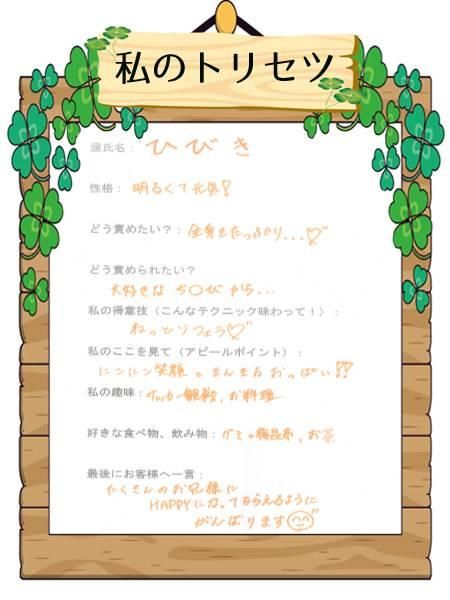 私のトリセツ
源氏名： ひびき
性格： 明るくて元気！
どう責めたい？： 全身をたっぷり...♡
どう責められたい？
大好きな ち〇び から...
私の得意技（こんなテクニック味わって！）：
ねっとりフェラ♡
私のここを見て（アピールポイント）：
ニコニコ笑顔とまんまるおっぱい!!
私の趣味： サッカー観戦、お料理
好きな食べ物、飲み物： グミ、梅昆布、お茶
最後にお客様へ一言：
たくさんのお兄様に
HAPPYになってもらえるように
がんばります